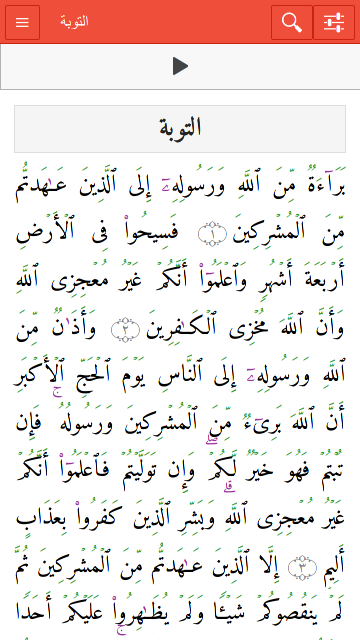 التوبة
التوبة
بَرَآءَةٌ مِّنَ ٱللَّهِ وَرَسُولِهِۦٓ إِلَى ٱلَّذِينَ عَـٰهَدتُّم
مِّنَ ٱلْمُشْرِكِينَ ﴿١﴾ فَسِيحُوا۟ فِى ٱلْأَرْضِ
أَرْبَعَةَ أَشْهُرٍ وَٱعْلَمُوٓا۟ أَنَّكُمْ غَيْرُ مُعْجِزِى ٱللَّهِ
وَأَنَّ ٱللَّهَ مُخْزِى ٱلْكَـٰفِرِينَ ﴿٢﴾ وَأَذَٰنٌ مِّنَ
ٱللَّهِ وَرَسُولِهِۦٓ إِلَى ٱلنَّاسِ يَوْمَ ٱلْحَجِّ ٱلْأَكْبَرِ
أَنَّ ٱللَّهَ بَرِىٓءٌ مِّنَ ٱلْمُشْرِكِينَ ۙ وَرَسُولُهُۥ ۚ فَإِن
تُبْتُمْ فَهُوَ خَيْرٌ لَّكُمْ ۖ وَإِن تَوَلَّيْتُمْ فَٱعْلَمُوٓا۟ أَنَّكُمْ
غَيْرُ مُعْجِزِى ٱللَّهِ ۗ وَبَشِّرِ ٱلَّذِينَ كَفَرُوا۟ بِعَذَابٍ
أَلِيمٍ ﴿٣﴾ إِلَّا ٱلَّذِينَ عَـٰهَدتُّم مِّنَ ٱلْمُشْرِكِينَ ثُمَّ
لَمْ يَنقُصُوكُمْ شَيْـًٔا وَلَمْ يُظَـٰهِرُوا۟ عَلَيْكُمْ أَحَدًا